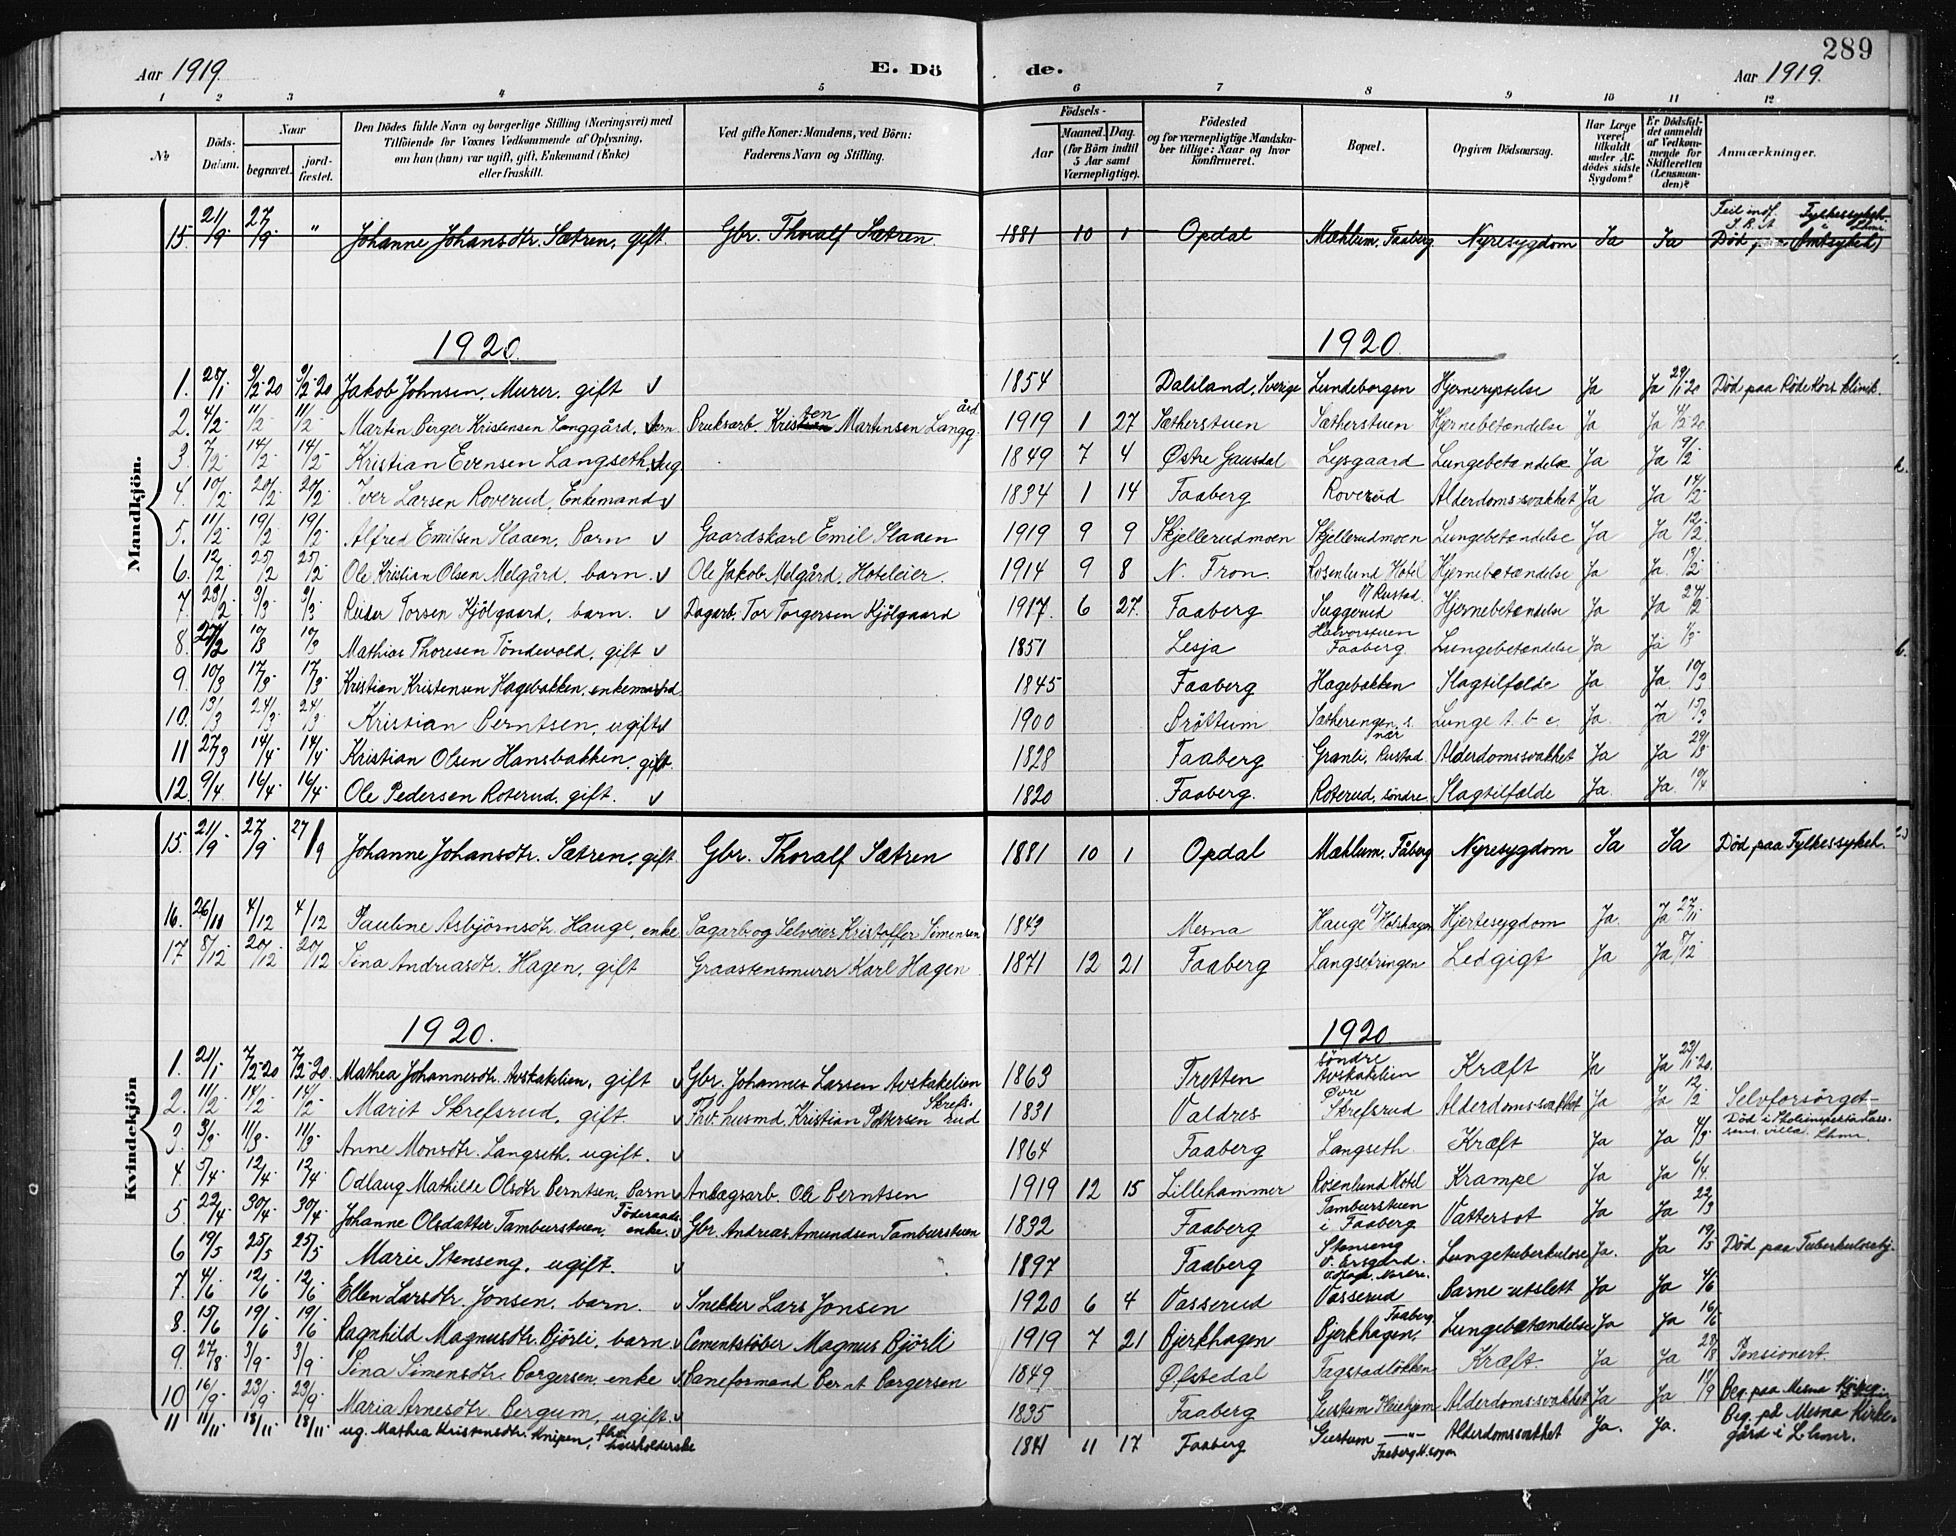 289
Aar 1919. E. Döde. Aar 1919.
1 2 3 4 5 6 7 8 9 10 11 12
№ Döds-Datum. Naar begravet. jordfæstet. Den Dödes fulde Navn og borgerlige Stilling (Næringsvei) med Tilföiende for Voxnes Vedkommende af Oplysning, om han (hun) var ugift, gift, Enkemand (Enke) eller fraskilt. Ved gifte Koner: Mandens, ved Börn: Faderens Navn og Stilling. Födsels- Aar Maaned. Dag. (for Börn indtil 5 Aar samt Værnepligtige). Födested og for værnepligtige Mandskaber tillige: Naar og hvor konfirmeret. Bopæl. Opgiven Dödsaarsag. Har Læge været tilkaldt under Afdödes sidste Sygdom? Er Dödsfaldet anmeldt af Vedkommende for Skifteretten (Lensmanden)? Anmærkninger.
Mandkjön.
15. 21/9 27/9 " Johanne Johansdtr. Sætren, gift Gbr. Thoralf Sætren 1881 10 1 Opdal Mæhlum, Faaberg Nyresygdom Ja Ja Feil indf. Død paa Amtsykeh. Fylkessykeh. i Lhmr.
1920 1920
1. 28/1 9/2-20 9/2-20 Jakob Johnsen, Murer, gift v 1854 Dalsland, Sverige Lundeborgen Hjernerystelse Ja Ja 29/1-20 Død paa Røde Kors klinik.
2. 4/2 11/2 11/2 Martin Berger Kristensen Langgård, barn Bruksarb. Kristen Martinsen Langgård 1919 1 27 Sætherstuen Sætherstuen Hjernebetændelse Ja Ja 4/2 20
3. 7/2 14/2 14/2 Kristian Evensen Langseth, ug 1849 7 4 Østre Gausdal Lysgaard Lungebetændelse Ja Ja 9/2
4. 10/2 20/2 20/2 Iver Larsen Roverud, Enkemand v 1834 1 14 Faaberg Roverud Alderdomssvakhet Ja Ja 14/2
5. 11/2 19/2 19/2 Alfred Emilsen Slaaen, Barn v Gaardskarl Emil Slaaen 1919 9 9 Skjellerudmoen Skjellerudmoen Lungebetændelse Ja Ja 12/2
6. 12/2 25/2 25/2 Ole Kristian Olsen Melgård, barn. v Ole Jakob Melgård, Hoteleier. 1914 9 8 N. Fron. Rosenlund Hotel Hjernebetændelse Ja Ja. 13/2
7. 23/2 3/3 3/3 Reidar Torsen Kjölgaard, barn. v Dagarb. Tor Torgersen Kjölgaard 1917. 6 27. Faaberg Suggerud v/ Rustad Hjernebetændelse Ja Ja 24/2
8. 27/2 10/3 10/3 Mathias Thoresen Töndevold, gift v 1851 Lesja Halvorstuen Faaberg Lungebetændelse Ja Ja 1/3
9. 10/3 17/3 17/3 Kristian Kristensen Hagebakken, enkemand 1845 Faaberg Hagebakken Slagtilfælde Ja Ja 10/3
10. 13/3 24/3 24/3 Kristian Berntsen, ugift v 1900 Bröttum Sætherengen, s. Lunge t. b. c. Ja. Ja 15/3
11 27/3 14/4 14/4 Kristian Olsen Hansbakken, gift 1828 Faaberg Granli, nær Rustad Alderdomssvakhet Ja Ja 29/3
12. 9/4 16/4 16/4 Ole Pedersen Roterud, gift. v 1820 Faaberg. Roterud, söndre Slagtilfælde Ja. Ja. 10/4
Kvindekjön
15. 21/9 27/9 27/9 Johanne Johansdtr. Sætren, gift Gbr. Thoralf Sætren 1881 10 1 Opdal Mæhlum, Fåberg Nyresygdom Ja Ja Død paa Fylkessykeh.
16. 26/11 4/12 4/12 Pauline Asbjörnsdtr. Hauge, enke Sagarb. og Selveier Kristoffer Simensen 1843 Mesna Hauge v/ Holshagen Hjertesygdom Ja. Ja 27/11
17 8/12 20/12 20/12 Sina Andreasdtr. Hagen, gift Graastensmurer Karl Hagen 1871 12 21 Faaberg Langsetringen Ledgigt Ja Ja 9/12
1920. 1920
1. 21/1 7/2-20 7/2-20 Mathea Johannesdtr. Avskakelien, gift v Gbr. Johannes Larsen Avskakelien 1863 Tretten söndre Avskakelien Kræft Ja Ja 23/1-20.
2. 11/2 14/2 14/2 Marit Skrefsrud, gift. v Fhv. husmd. Kristian Pettersen Skrefsrud 1831 Valdres Øvre Skrefsrud Alderdomssvakhet Ja Ja 12/2 Selvforsörget
3. 3/3 11/3 11/3 Anne Monsdtr. Langseth, ugift. v 1864 Faaberg Langseth. Kræft Ja Ja 4/3 Död i Skoleinspektør Larssens villa. Lhmr.
4. 5/4 12/4 12/4 Odlaug Mathilde Olsdtr Berntsen, Barn v Anlagsarb. Ole Berntsen 1919 12 15 Lillehammer Rosenlund Hotel Krampe Ja Ja 6/4
5 22/4 30/4 30/4 Johanne Olsdatter Tamburstuen, Föderaadsenke. v Gbr. Andreas Amundsen Tamburstuen 1832 Faaberg Tamburstuen i Faaberg Vattersot Ja Ja 22/3
6 19/5 25/5 25/5 Marie Stenseng, ugift. v 1897 Faaberg Stenseng Lungetuberkulose Ja. Ja 19/5 Død paa Tuberkulosehj.
7. 4/6 12/6 12/6 Ellen Larsdtr. Jonsen, barn. v Snekker Lars Jonsen 1920 6 4 Vasserud Vasserud Barne utslett Ja Ja 4/6
8. 15/6 19/6 19/6 Ragnhild Magnusdtr. Björli, barn v Cementstöber Magnus Björli 1919 7 21 Bjerkhagen Bjerkhagen, Faaberg Lungebetændelse Ja Ja 16/6
9. 27/8 3/9 3/9 Sina Simensdtr. Borgersen, enke v Baneformand Bernt Borgersen 1849 Øfstedal Fagstadløkken Kræft Ja Ja 28/8 Pensionert.
10 16/9 23/9 23/9 Maria Arnesdtr. Bergum, ugift. v 1835 Faaberg Gustum Pleiehjem Alderdomssvakhet Ja Ja 17/9 Beg. paa Mesna Kirkeg.
11 11/11 18/11 18/11 ug. Mathea Kristensdtr. Knipen, fhv. husholderske 1841 11 17 Faaberg Gustum —"— Faaberg H.sogn Alderdomssvakhet Ja. Ja. Beg. på Mesna Kirkegård i Lhmr.